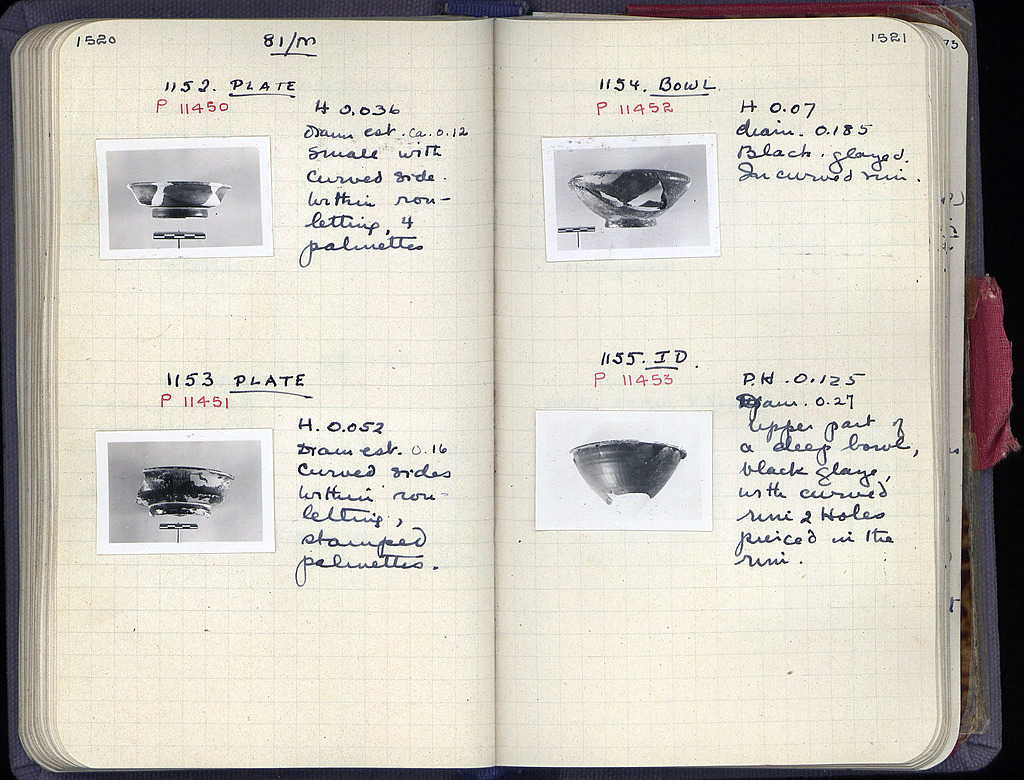 1520
81/M
1152. PLATE
P 11450
H 0.036
Diam est. ca. 0.12
Small with
curved side.
Within rou-
letting, 4
palmettes
1153 PLATE
P 11451
H. 0.052
Diam est. 0.16
Curved sides
Within rou-
letting,
stamped
palmettes.
1521
1154. BOWL
P 11452
H 0.07
diam. 0.185
Black. glazed.
Incurved rim.
1155. ID.
P 11453
P.H. 0.125
Diam. 0.27
Upper part of
a deep bowl,
black glaze,
with curved
rim 2 Holes
pierced in the
rim.